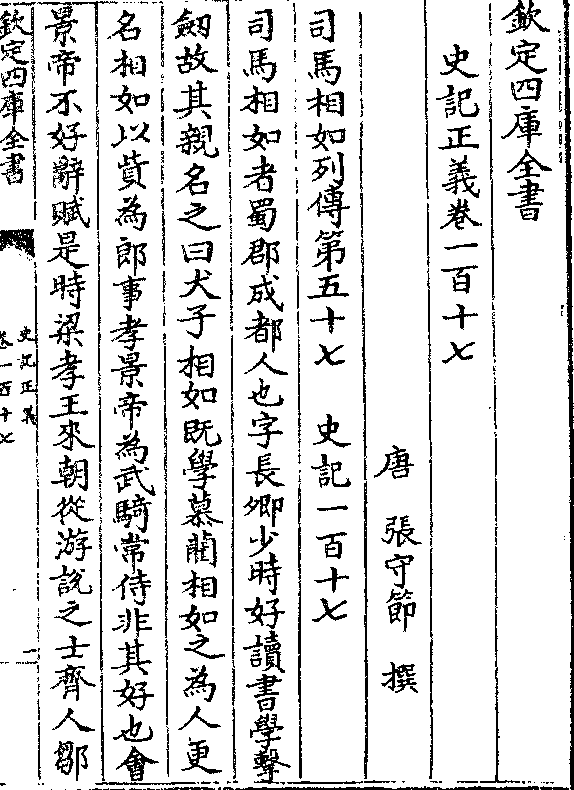 欽定四庫全書
史記正義卷一百十七
唐 張守節 撰
司馬相如列傳第五十七 史記一百十七
司馬相如者蜀郡成都人也字長卿少時好讀書學擊
劒故其親名之曰犬子相如既學慕藺相如之為人更
名相如以貲為郎事孝景帝為武騎常侍非其好也會
景帝不好辭賦是時梁孝王來朝從游說之士齊人鄒
欽定四庫全書
史記正義
卷一百十七
一